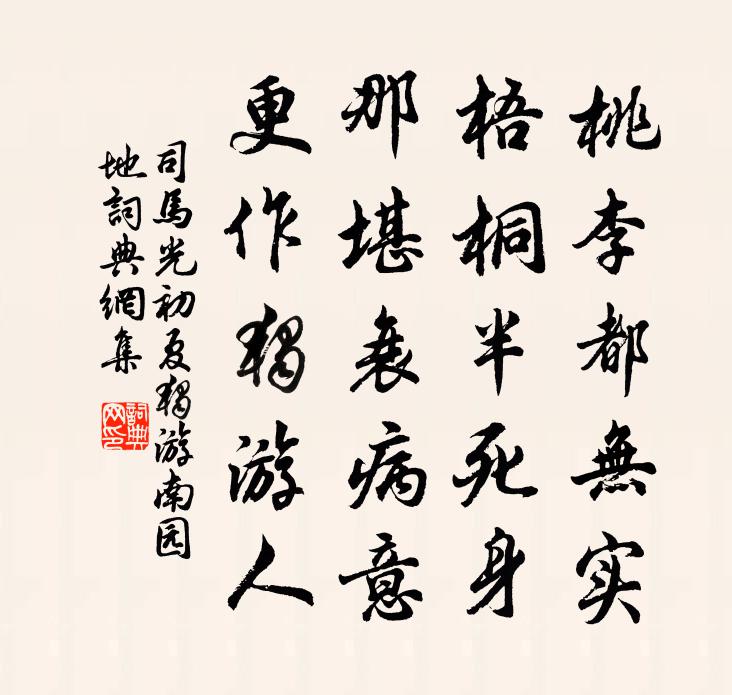 桃李都無实
梧桐半死身
那堪衰病意
更作獨游人
司馬光初夏獨游南园
地詞典網集
詞典网印